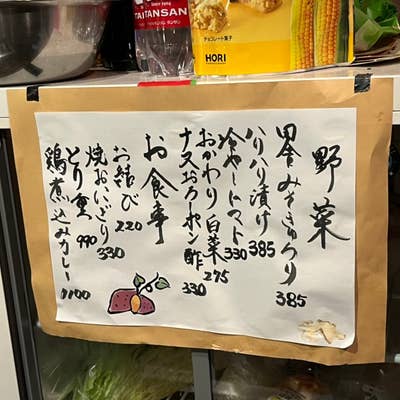 TAITANSAN
チョコレート菓子
HORI
野菜
田舎みそきゅうり 385
ハリハリ漬け 385
冷やしトマト 330
おかわり白菜 275
ナスおろしポン酢 330
お食事
お結び 220
焼おにぎり 330
とり重 990
鶏煮込みカレー 1100